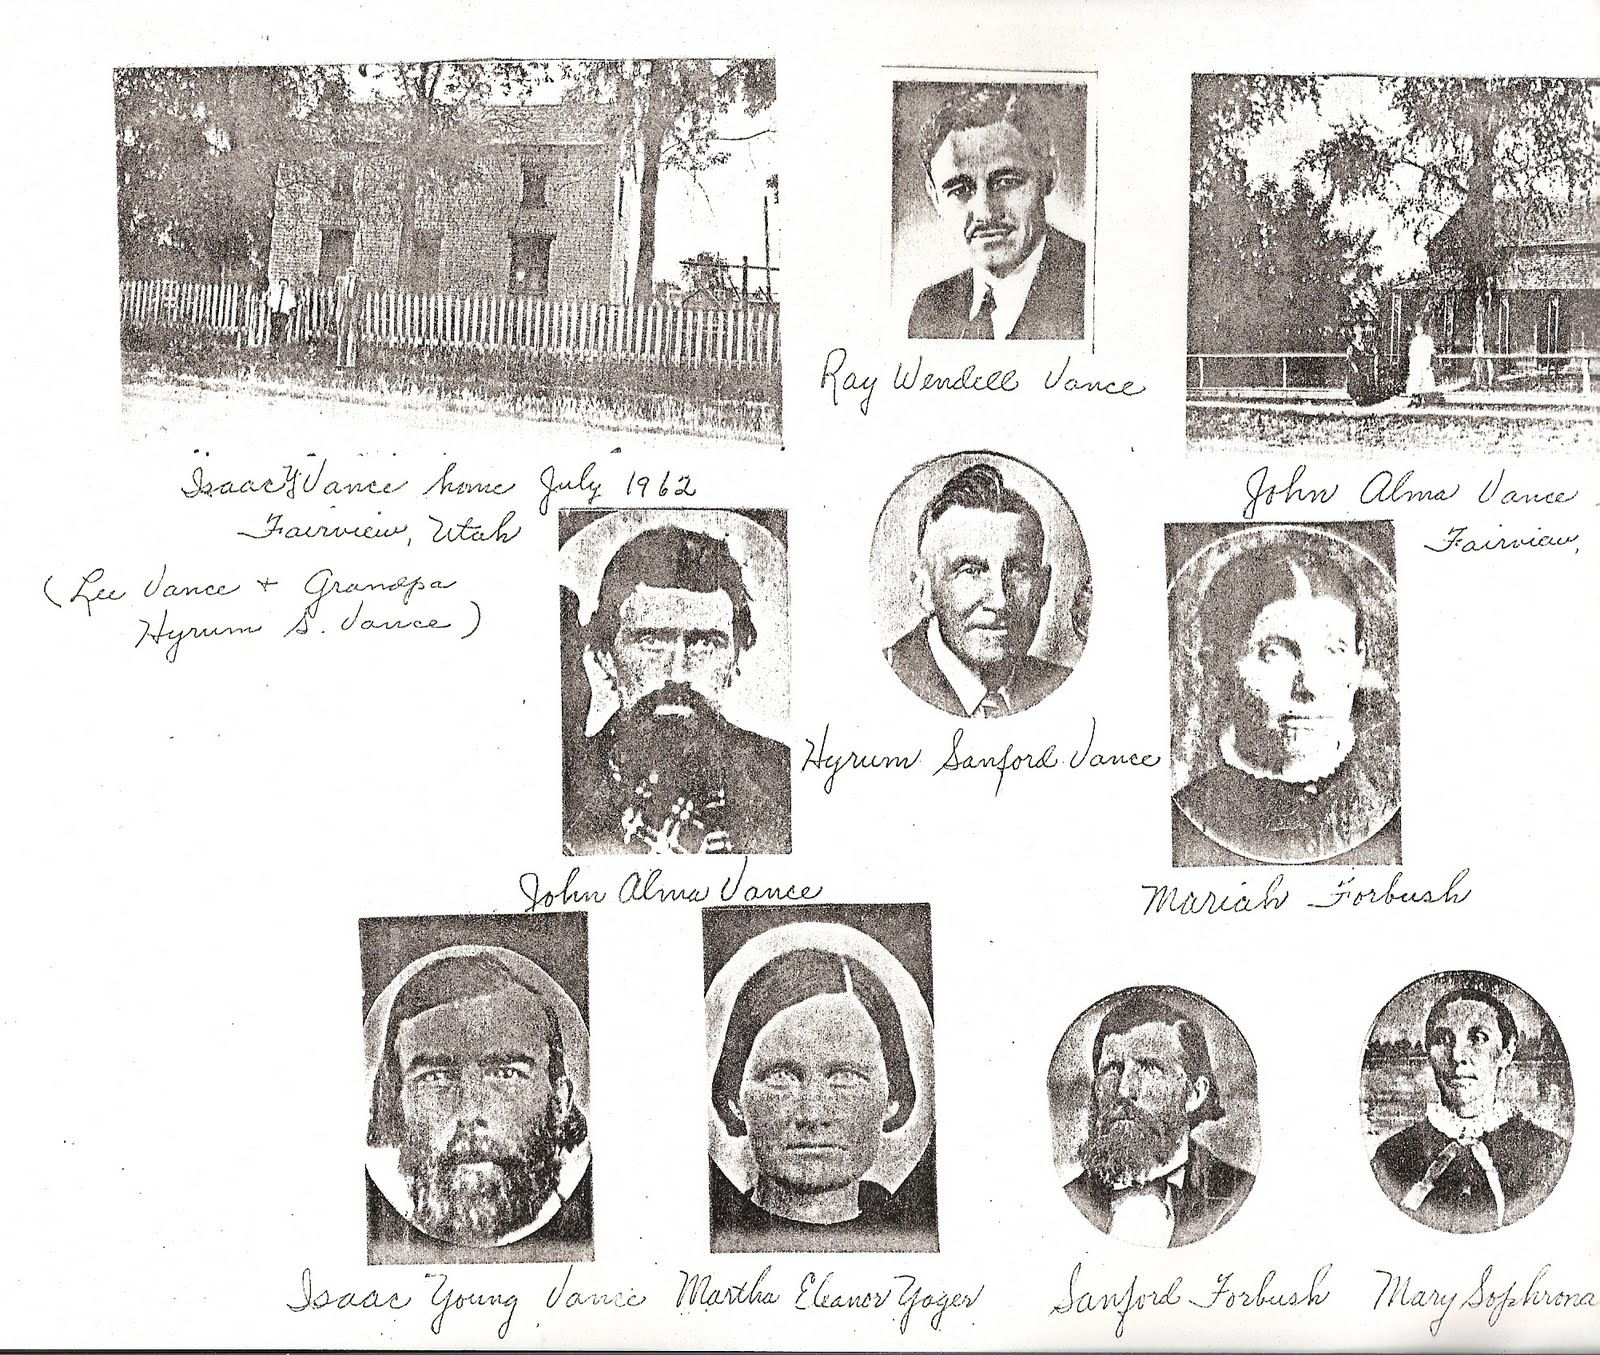 Ray Wendell Vance
Isaac Y Vance home July 1962
Fairview, Utah
(Lee Vance + Grandpa
Hyrum S. Vance)
John Alma Vance
Fairview,
Hyrum Sanford Vance
John Alma Vance
Mariah Forbush
Isaac Young Vance
Martha Eleanor Yager
Sanford Forbush
Mary Sophrona